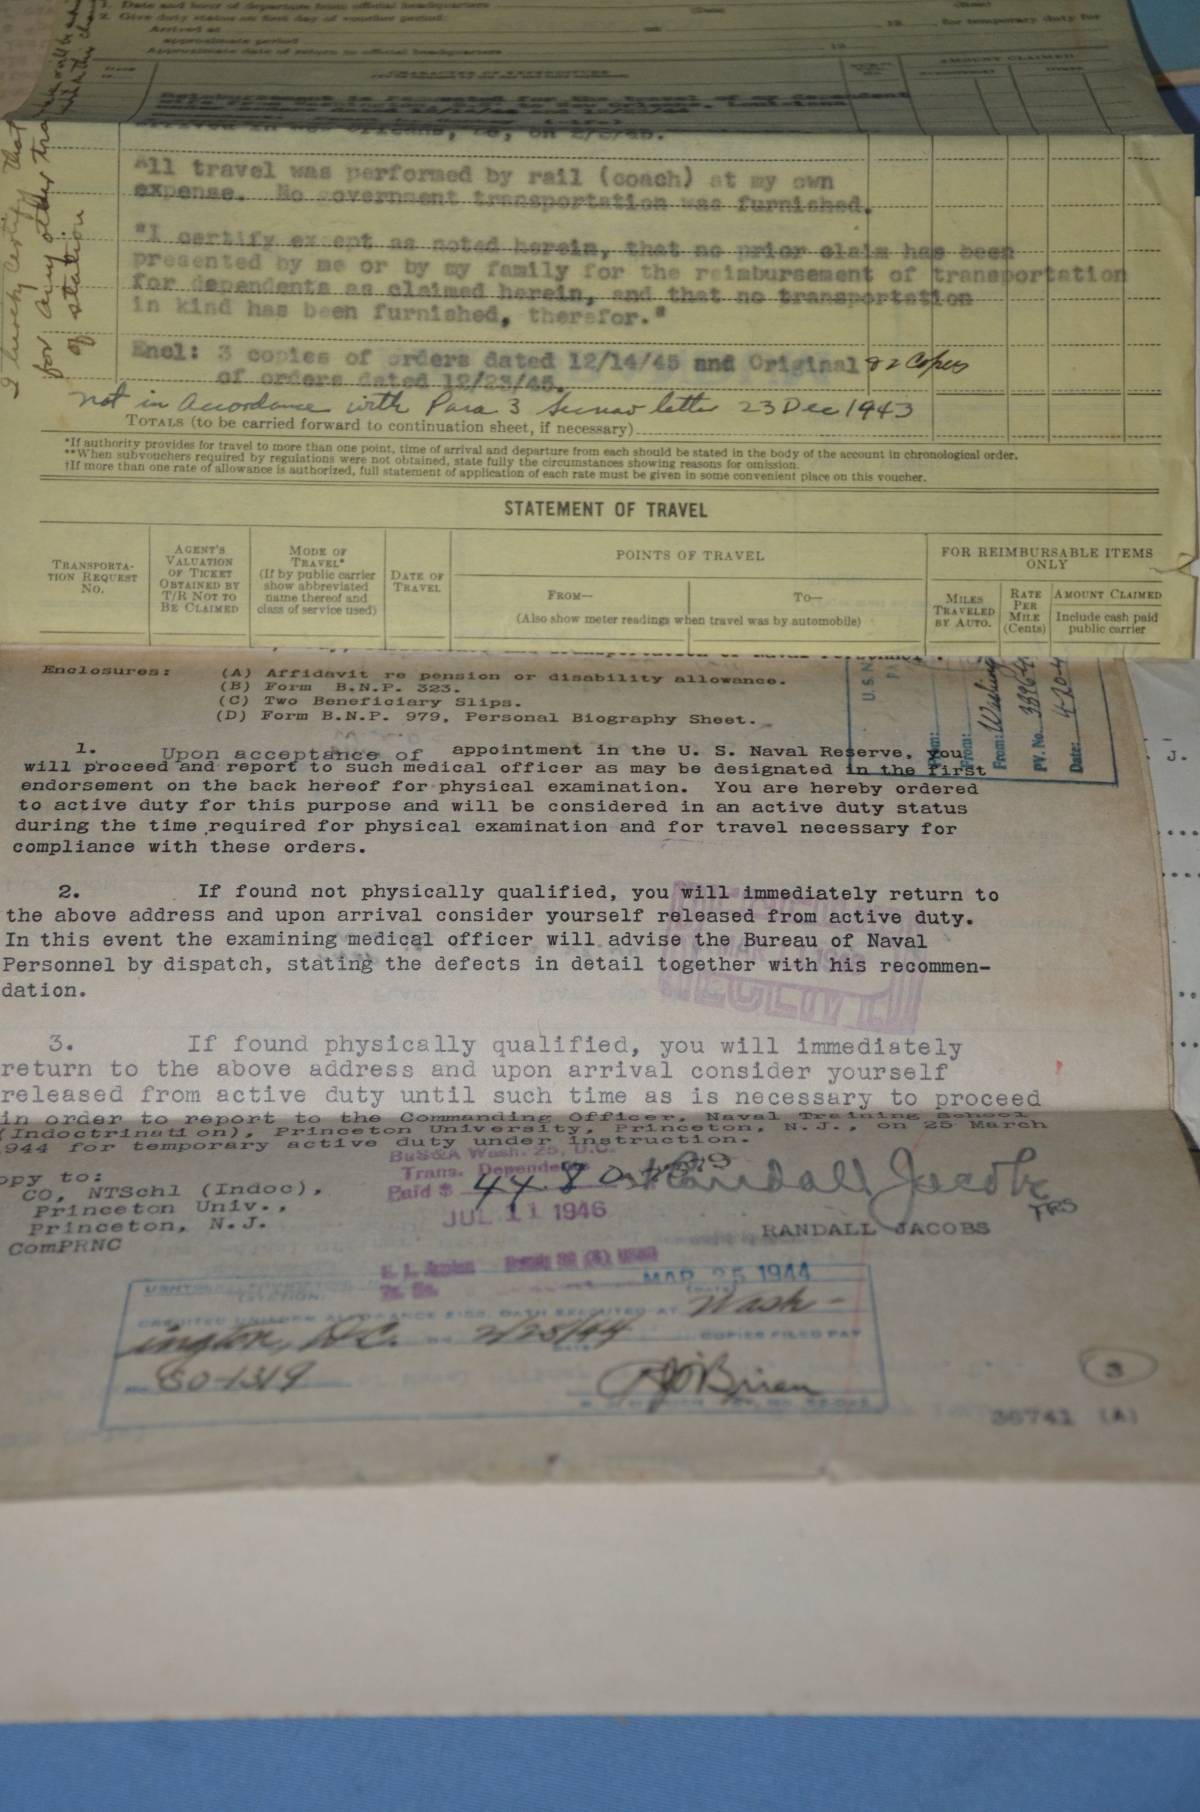 1. Date and hour of departure from official headquarters
(Date) (Hour)
2. Give duty status on first day of voucher period:
Arrived at on 19 for temporary duty for
approximate period
Approximate date of return to official headquarters 19
CHARACTER OF EXPENDITURE
AMOUNT CLAIMED
Reimbursement is requested for the travel of my dependent
wife from to New Orleans, Louisiana
arrived in New Orleans, La, on 2/2/45.
All travel was performed by rail (coach) at my own
expense. No government transportation was furnished.
"I certify except as noted herein, that no prior claim has been
presented by me or by my family for the reimbursement of transportation
for dependents as claimed herein, and that no transportation
in kind has been furnished, therefor."
Encl: 3 copies of orders dated 12/14/45 and Original & 2 Copies
of orders dated 12/23/45.
not in accordance with Para 3 Secnav letter 23 Dec 1943
TOTALS (to be carried forward to continuation sheet, if necessary)
I hereby certify that
for any other tra
of station
*If authority provides for travel to more than one point, time of arrival and departure from each should be stated in the body of the account in chronological order.
**When subvouchers required by regulations were not obtained, state fully the circumstances showing reasons for omission.
†If more than one rate of allowance is authorized, full statement of application of each rate must be given in some convenient place on this voucher.
STATEMENT OF TRAVEL
TRANSPORTA-
TION REQUEST
No.
AGENT'S
VALUATION
OF TICKET
OBTAINED BY
T/R NOT TO
BE CLAIMED
MODE OF
TRAVEL*
(If by public carrier
show abbreviated
name thereof and
class of service used)
DATE OF
TRAVEL
POINTS OF TRAVEL
FROM—
TO—
(Also show meter readings when travel was by automobile)
FOR REIMBURSABLE ITEMS
ONLY
MILES
TRAVELED
BY AUTO.
RATE
PER
MILE
(Cents)
AMOUNT CLAIMED
Include cash paid
public carrier
Enclosures: (A) Affidavit re pension or disability allowance.
(B) Form B.N.P. 323.
(C) Two Beneficiary Slips.
(D) Form B.N.P. 979, Personal Biography Sheet.
U.S.N.
From:
From: Washing
PV. No.
Date: 4-20-4
1. Upon acceptance of appointment in the U. S. Naval Reserve, you
will proceed and report to such medical officer as may be designated in the first
endorsement on the back hereof for physical examination. You are hereby ordered
to active duty for this purpose and will be considered in an active duty status
during the time required for physical examination and for travel necessary for
compliance with these orders.
2. If found not physically qualified, you will immediately return to
the above address and upon arrival consider yourself released from active duty.
In this event the examining medical officer will advise the Bureau of Naval
Personnel by dispatch, stating the defects in detail together with his recommen-
dation.
3. If found physically qualified, you will immediately
return to the above address and upon arrival consider yourself
released from active duty until such time as is necessary to proceed
in order to report to the Commanding Officer, Naval Training School
(Indoctrination), Princeton University, Princeton, N.J., on 25 March
944 for temporary active duty under instruction.
opy to:
CO, NTSchl (Indoc),
Princeton Univ.,
Princeton, N.J.
ComPRNC
BuS&A Wash. 25, D.C.
Trans. Dependents
Paid $ 44.80
JUL 11 1946
Randall Jacobs
RANDALL JACOBS
MAR 25 1944
Wash-
ington, D.C. 2/25/44 COPIES FILED PAY
No. 80-1319
O'Brien
3
36741 (A)
J.